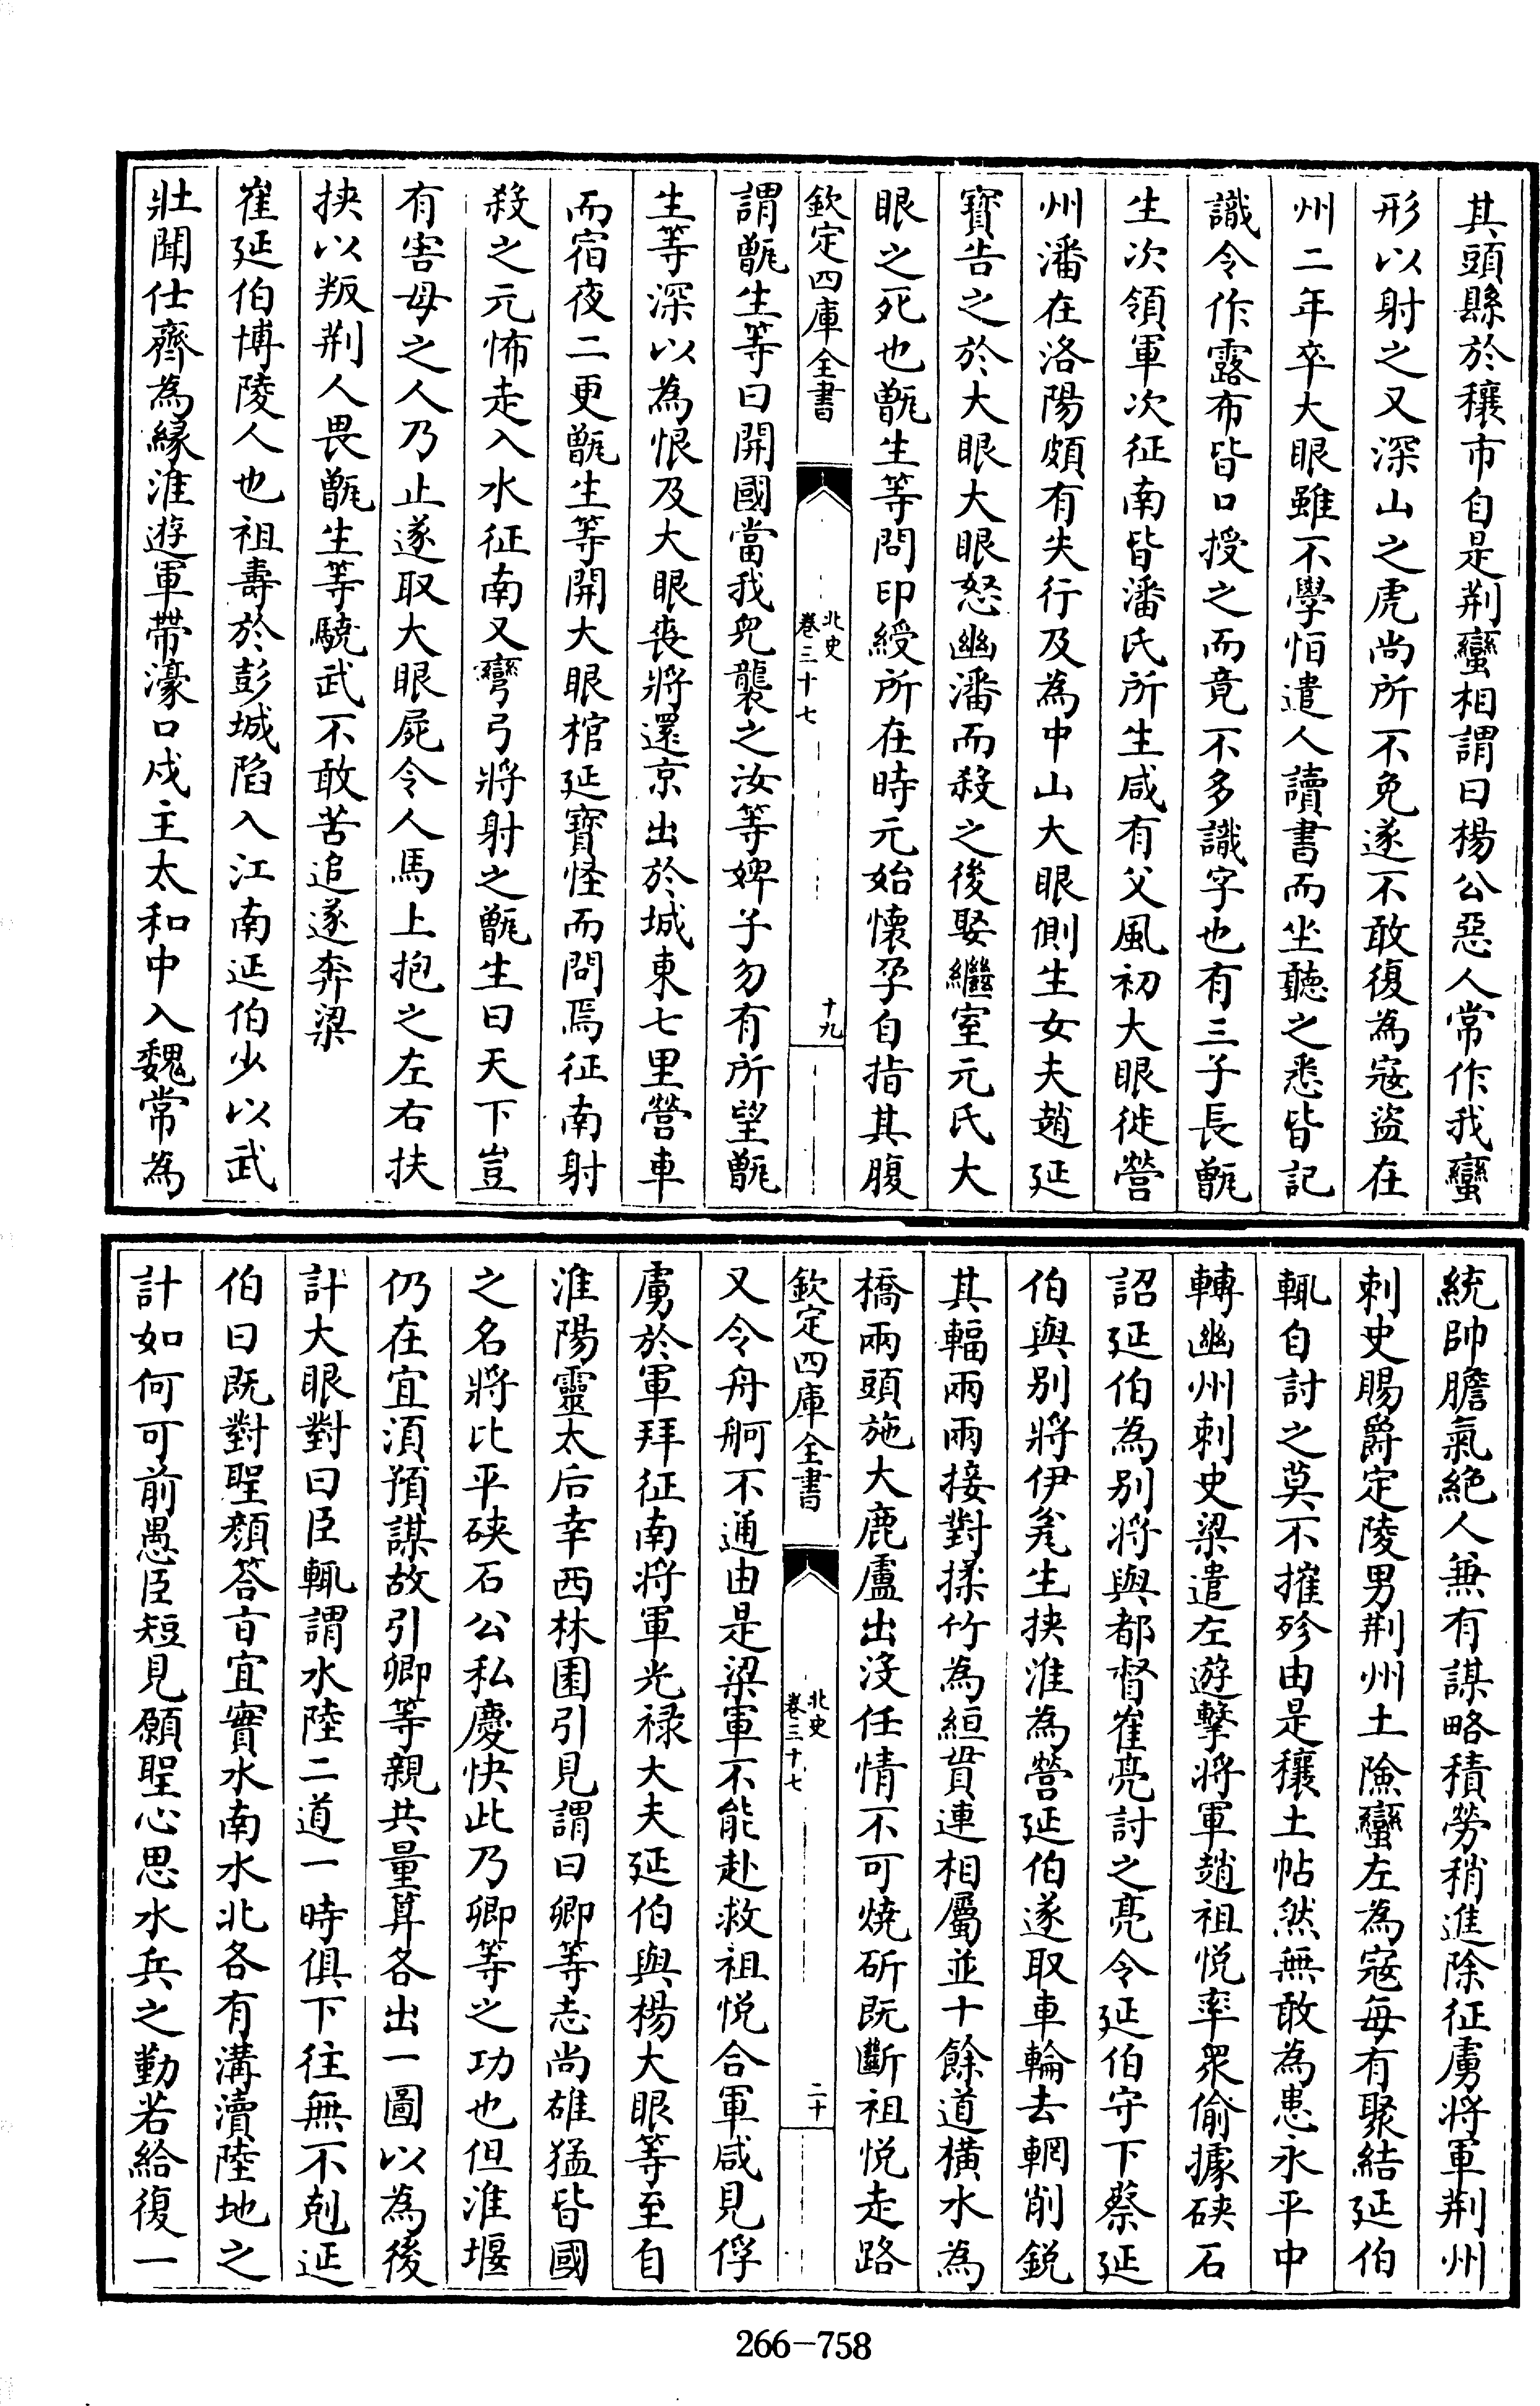 其頭縣於穰市自是荆蠻相謂曰楊公惡人常作我蠻
形以射之又深山之虎尚所不免遂不敢復為寇盜在
州二年卒大眼雖不學怕遣人讀書而坐聽之悉皆記
識令作露布皆口授之而竟不多識字也有三子長甑
生次領軍次征南皆潘氏所生咸有父風初大眼徙營
州潘在洛陽頗有失行及為中山大眼側生女夫趙延
寶告之於大眼大眼怒幽潘而殺之後娶繼室元氏大
眼之死也甑生等問印綬所在時元始懷孕自指其腹
欽定四庫全書
北史
卷三十七
十九
謂甑生等曰開國當我兒襲之汝等婢子勿有所望甑
生等深以為恨及大眼喪將還京出於城東七里營車
而宿夜二更甑生等開大眼棺延寶怪而問焉征南射
殺之元怖走入水征南又彎弓將射之甑生曰天下豈
有害母之人乃止遂取大眼屍令人馬上抱之左右扶
挾以叛荆人畏甑生等驍武不敢苦追遂奔梁
崔延伯博陵人也祖壽於彭城陷入江南延伯少以武
壯聞仕齊為緣淮遊軍帶濠口戍主太和中入魏常為
統帥膽氣絶人兼有謀略積勞稍進除征虜將軍荆州
刺史賜爵定陵男荆州土險蠻左為寇每有聚結延伯
輒自討之莫不摧殄由是穰土帖然無敢為患永平中
轉幽州刺史梁遣左遊擊將軍趙祖悦率衆偷據硤石
詔延伯為别將與都督崔亮討之亮令延伯守下蔡延
伯與别將伊瓫生挾淮為營延伯遂取車輪去輞削鋭
其輻兩兩接對揉竹為絙貫連相屬並十餘道横水為
橋兩頭施大鹿盧出沒任情不可燒斫既斷祖悦走路
欽定四庫全書
北史
卷三十七
二十
又令舟舸不通由是梁軍不能赴救祖悦合軍咸見俘
虜於軍拜征南將軍光禄大夫延伯與楊大眼等至自
淮陽靈太后幸西林園引見謂曰卿等志尚雄猛皆國
之名將比平硤石公私慶快此乃卿等之功也但淮堰
仍在宜須預謀故引卿等親共量算各出一圖以為後
計大眼對曰臣輒謂水陸二道一時俱下往無不剋延
伯曰既對聖顔答㫖宜實水南水北各有溝瀆陸地之
計如何可前愚臣短見願聖心思水兵之勤若給復一
266-758